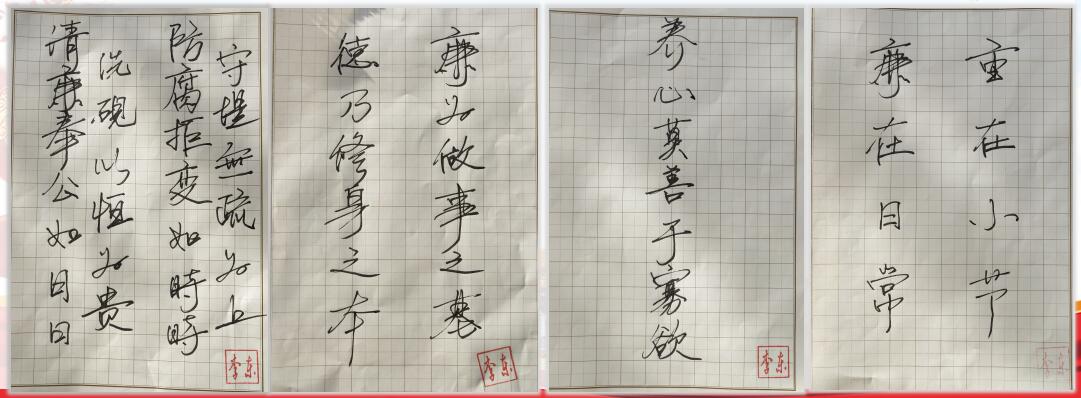 守堤無疏为上
防腐拒变如時時
洗硯以恒为貴
清廉奉公如日日
李东
廉为做事之基
德乃修身之本
李东
养心莫善于寡欲
李东
重在小节
廉在日常
李东